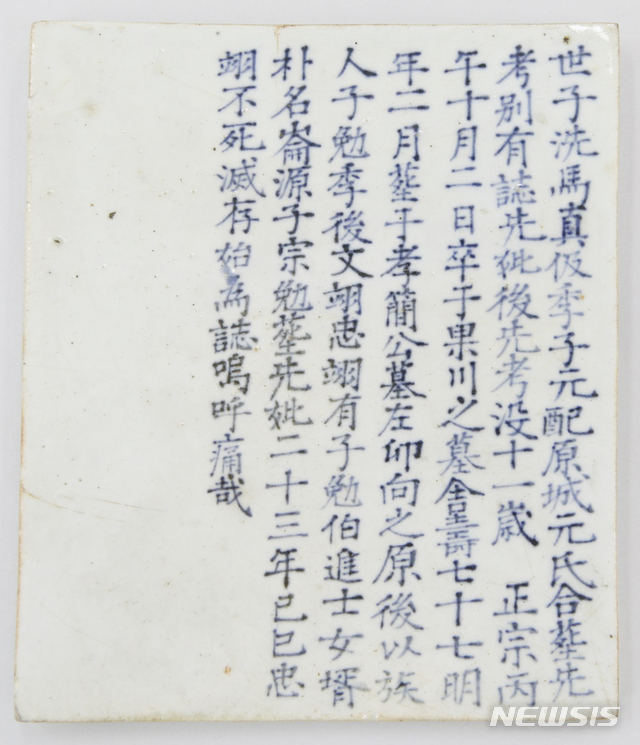 世子洗馬真伋季子元配原城元氏合葬先
考別有誌先妣後先考没十一歲 正宗丙
午十月二日卒于果川之墓舍呈壽七十七明
年二月葬于孝簡公墓左卯向之原後以族
人子勉季後文翊忠翊有子勉伯進士女壻
朴名崙源子宗勉葬先妣二十三年己巳忠
翊不死滅存始為誌嗚呼痛哉
NEWSIS